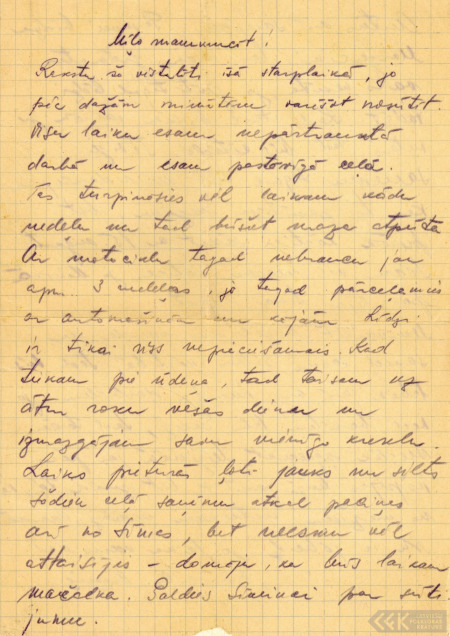 Mīļo mammucīt!
Rakstu šo vēstulīti īsā starplaikā, jo
pēc dažām minūtēm varēšu nosūtīt.
Visu laiku esam nepārtrauktā
darbā un esam pastāvīgā ceļā.
Tas turpināsies vēl laikam kādu
nedēļu un tad būšot maza atpūta
Ar motociklu tagad nebraucu jau
apm. 3 nedēļas, jo tagad pārceļamies
ar automašīnām un kājām. Līdzi
ir tikai viss nepieciešamais. Kad
tiekam pie ūdeņa, tad taisam uz
ātru roku veļas dienu un
izmazgājam savu vienīgo kreklu.
Laiks pieturās ļoti jauks un silts
Šodien ceļā saņēmu atkal paciņas
arī no Sīmes, bet neesmu vēl
attaisījis - domāju, ka būs laikam
Paldies par sūtī
jumu.